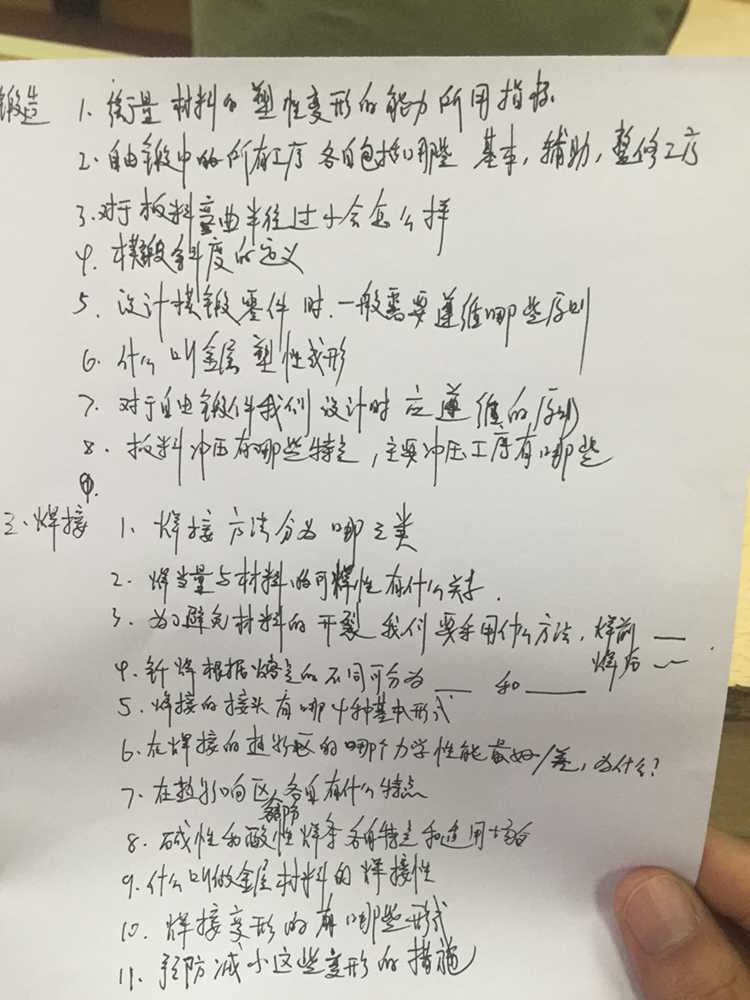 锻造 1. 衡量材料的塑性变形的能力所用指标
2. 自由锻中的所有工序各自包括哪些 基本, 辅助, 整修工序
3. 对于板料弯曲半径过小会怎么样
4. 模锻斜度的定义
5. 设计模锻零件时. 一般需要遵循哪些原则
6. 什么叫金属塑性成形
7. 对于自由锻件我们设计时应遵循的原则
8. 板料冲压有哪些特点, 主要冲压工序有哪些
9.
三. 焊接 1. 焊接方法分为哪三类
2. 焊当量与材料的可焊性有什么关系.
3. 为了避免材料的开裂我们要采用什么方法, 焊前 __
焊后 __
4. 钎焊根据熔点的不同可分为 __ 和 __
5. 焊接的接头有哪4种基本形式
6. 在焊接的热影区的哪个力学性能最好/差, 为什么?
7. 在热影响区各自有什么特点
部分
8. 碱性和酸性焊条各自特点和适用场合
9. 什么叫做金属材料的焊接性
10. 焊接变形的有哪些形式
11. 预防减小这些变形的措施